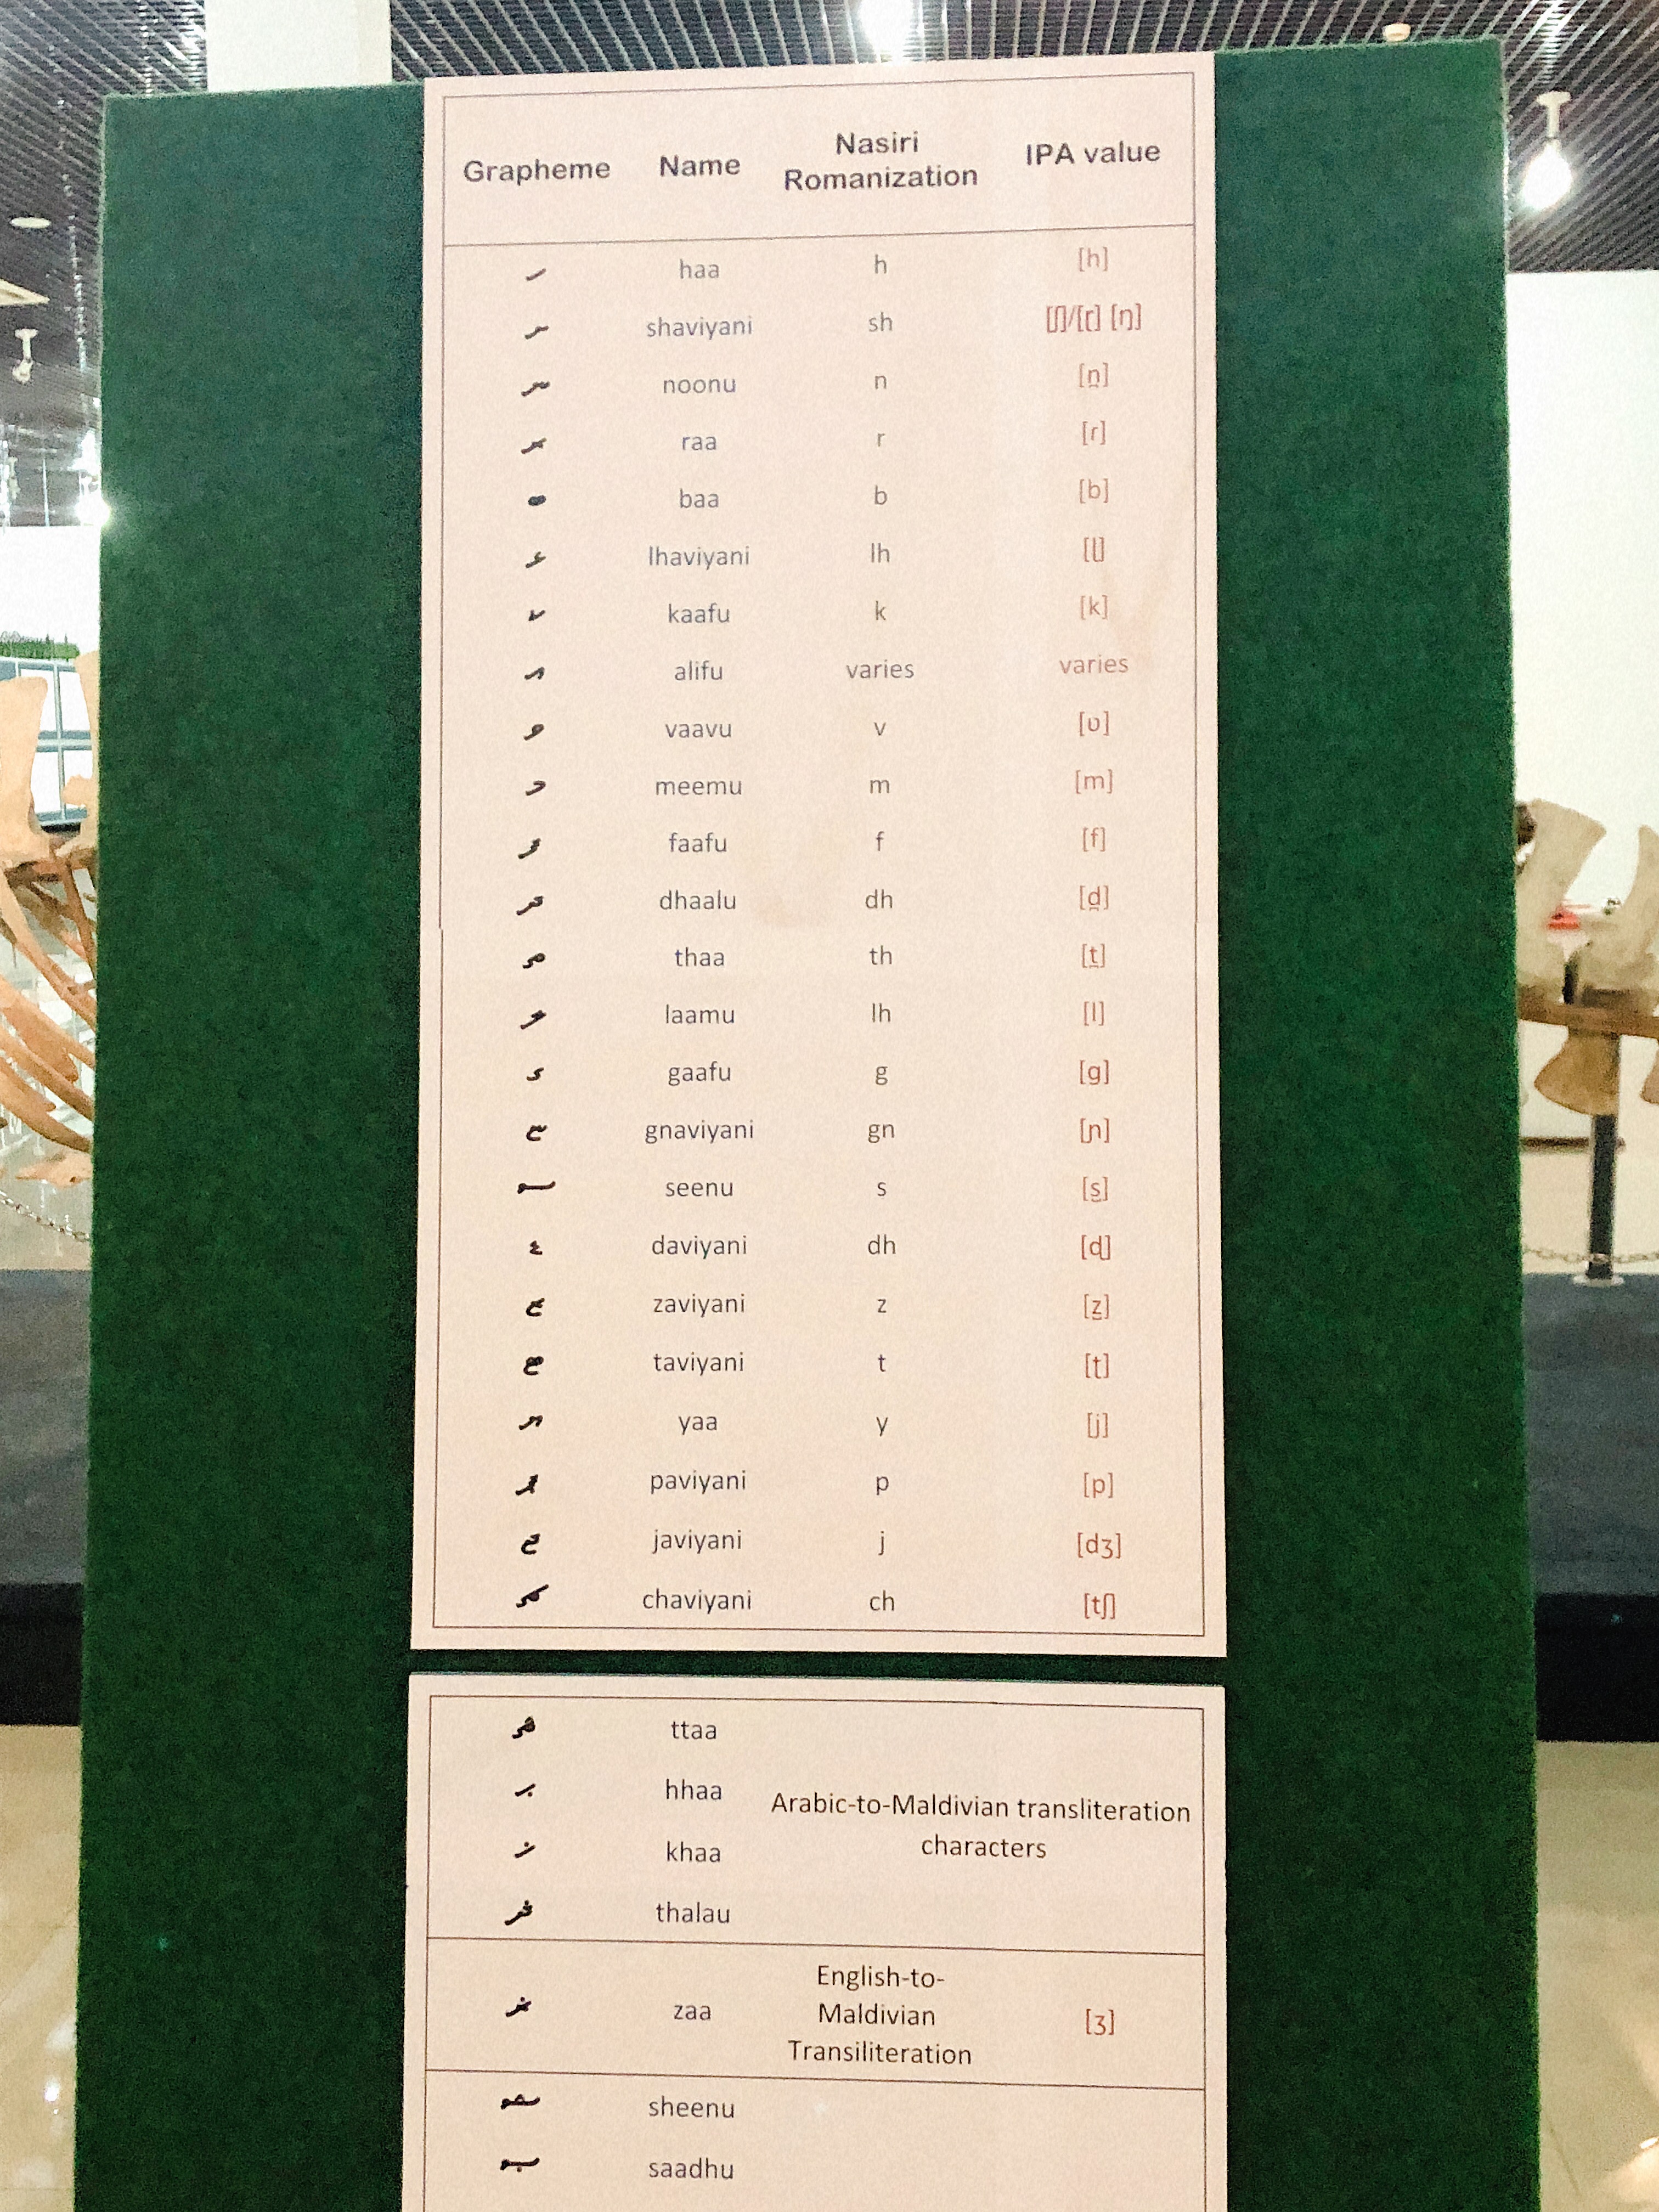 Grapheme Name Nasiri Romanization IPA value
ހ haa h [h]
ށ shaviyani sh [ʃ]/[ɽ] [ɳ]
ނ noonu n [n̪]
ރ raa r [ɾ]
ބ baa b [b]
ޅ lhaviyani lh [ɭ]
ކ kaafu k [k]
އ alifu varies varies
ވ vaavu v [ʋ]
މ meemu m [m]
ފ faafu f [f]
ދ dhaalu dh [d̪]
ތ thaa th [t̪]
ލ laamu lh [l]
ގ gaafu g [g]
ޏ gnaviyani gn [ɲ]
ސ seenu s [s̺]
ޑ daviyani dh [ɖ]
ޒ zaviyani z [z̺]
ޓ taviyani t [ʈ]
ޔ yaa y [j]
ޕ paviyani p [p]
ޖ javiyani j [dʒ]
ޗ chaviyani ch [tʃ]
ޘ ttaa
ޙ hhaa
Arabic-to-Maldivian transliteration
characters
ޚ khaa
ޛ thalau
ޜ zaa English-to-Maldivian Transiliteration [ʒ]
ޝ sheenu
ޞ saadhu